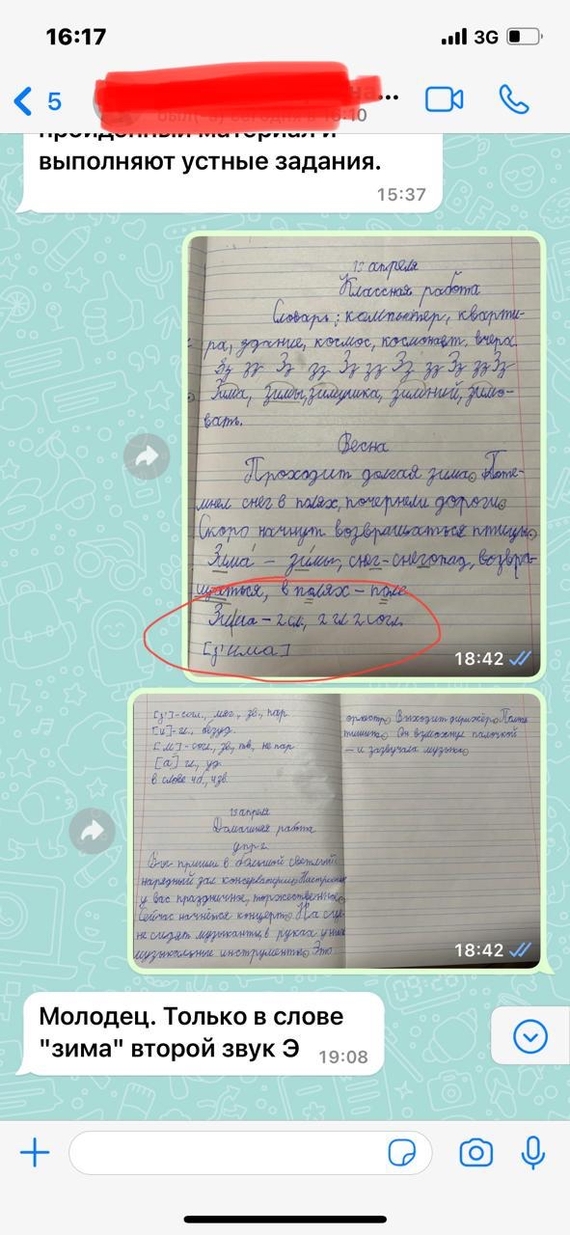 16:17
3G
5
...
был(-а) сегодня в 16:10
пройденный материал и
выполняют устные задания.
15:37
апреля
Классная работа
Словарь: компьютер, кварти-
ра, здание, космос, космонавт, вчера
Зз зз Зз зз Зз зз Зз зз Зз зз Зз
Зима, зимы, зимушка, зимний, зимо-
вать.
Весна
Проходит долгая зима. Поте-
мнел снег в полях, почернели дороги.
Скоро начнут возвращаться птицы.
Зима – зимы, снег-снегопад, возвра-
щаться, в полях – поле.
Зима – 2 сл., 2 гл. 2 согл.
[з'има]
18:42
[з']-согл., мяг., зв., пар.
[и]-гл., безуд.
[м']-согл., зв., тв., не пар.
[а] гл., уд.
в слове 4б., 4зв.
апреля
Домашняя работа
упр.
Вы пришли в большой светлый
нарядный зал консерватории. Настроение
у вас праздничное, торжественное.
Сейчас начнется концерт. На сце-
не сидят музыканты, в руках у них
музыкальные инструменты. Это
оркестр. Выходит дирижёр.
тишина. Он взмахнул палочкой
– и зазвучала музыка.
18:42
Молодец. Только в слове
"зима" второй звук Э
19:08